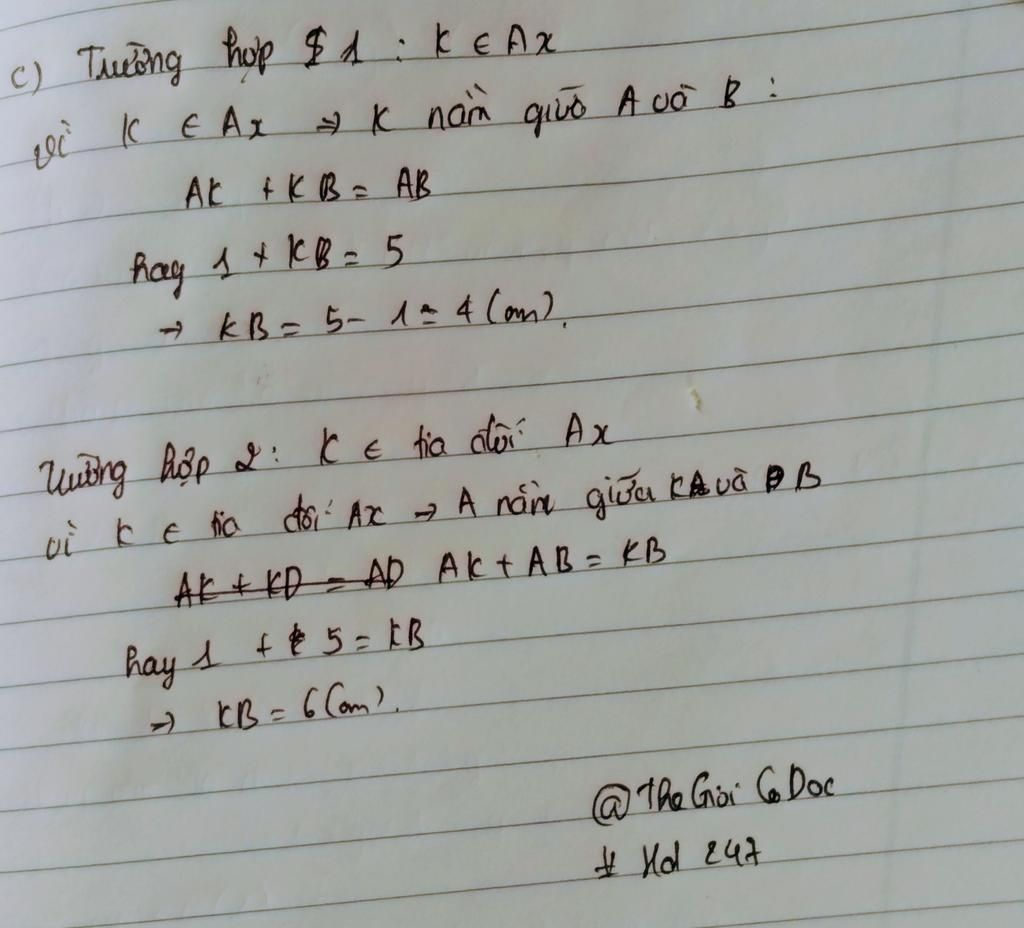 c) Trường hợp 1 : K ∈ Ax
vì K ∈ Ax ⇒ K nằm giữa A và B :
AK + KB = AB
hay 1 + KB = 5
→ KB = 5 - 1 = 4 (cm).
Trường hợp 2 : K ∈ tia đối Ax
vì K ∈ tia đối Ax → A nằm giữa K và B
AK + KD = AD AK + AB = KB
hay 1 + 5 = KB
→ KB = 6 (cm).
@TheGioi CoDoc
# Hd 247